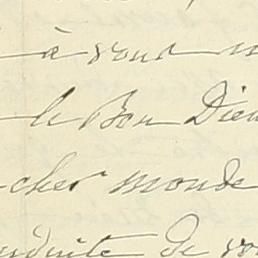 à vous
le Bon Dieu
cher monde
de vo